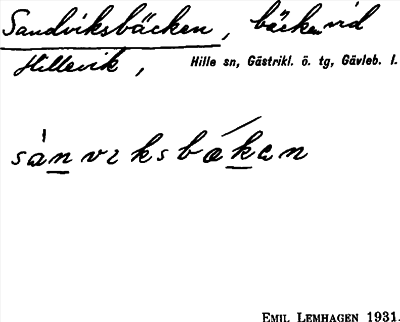 Sandviksbäcken, bäcken vid
Hillevik, Hille sn, Gästrikl. ö. tg, Gävleb. l.
EMIL LEMHAGEN 1931.